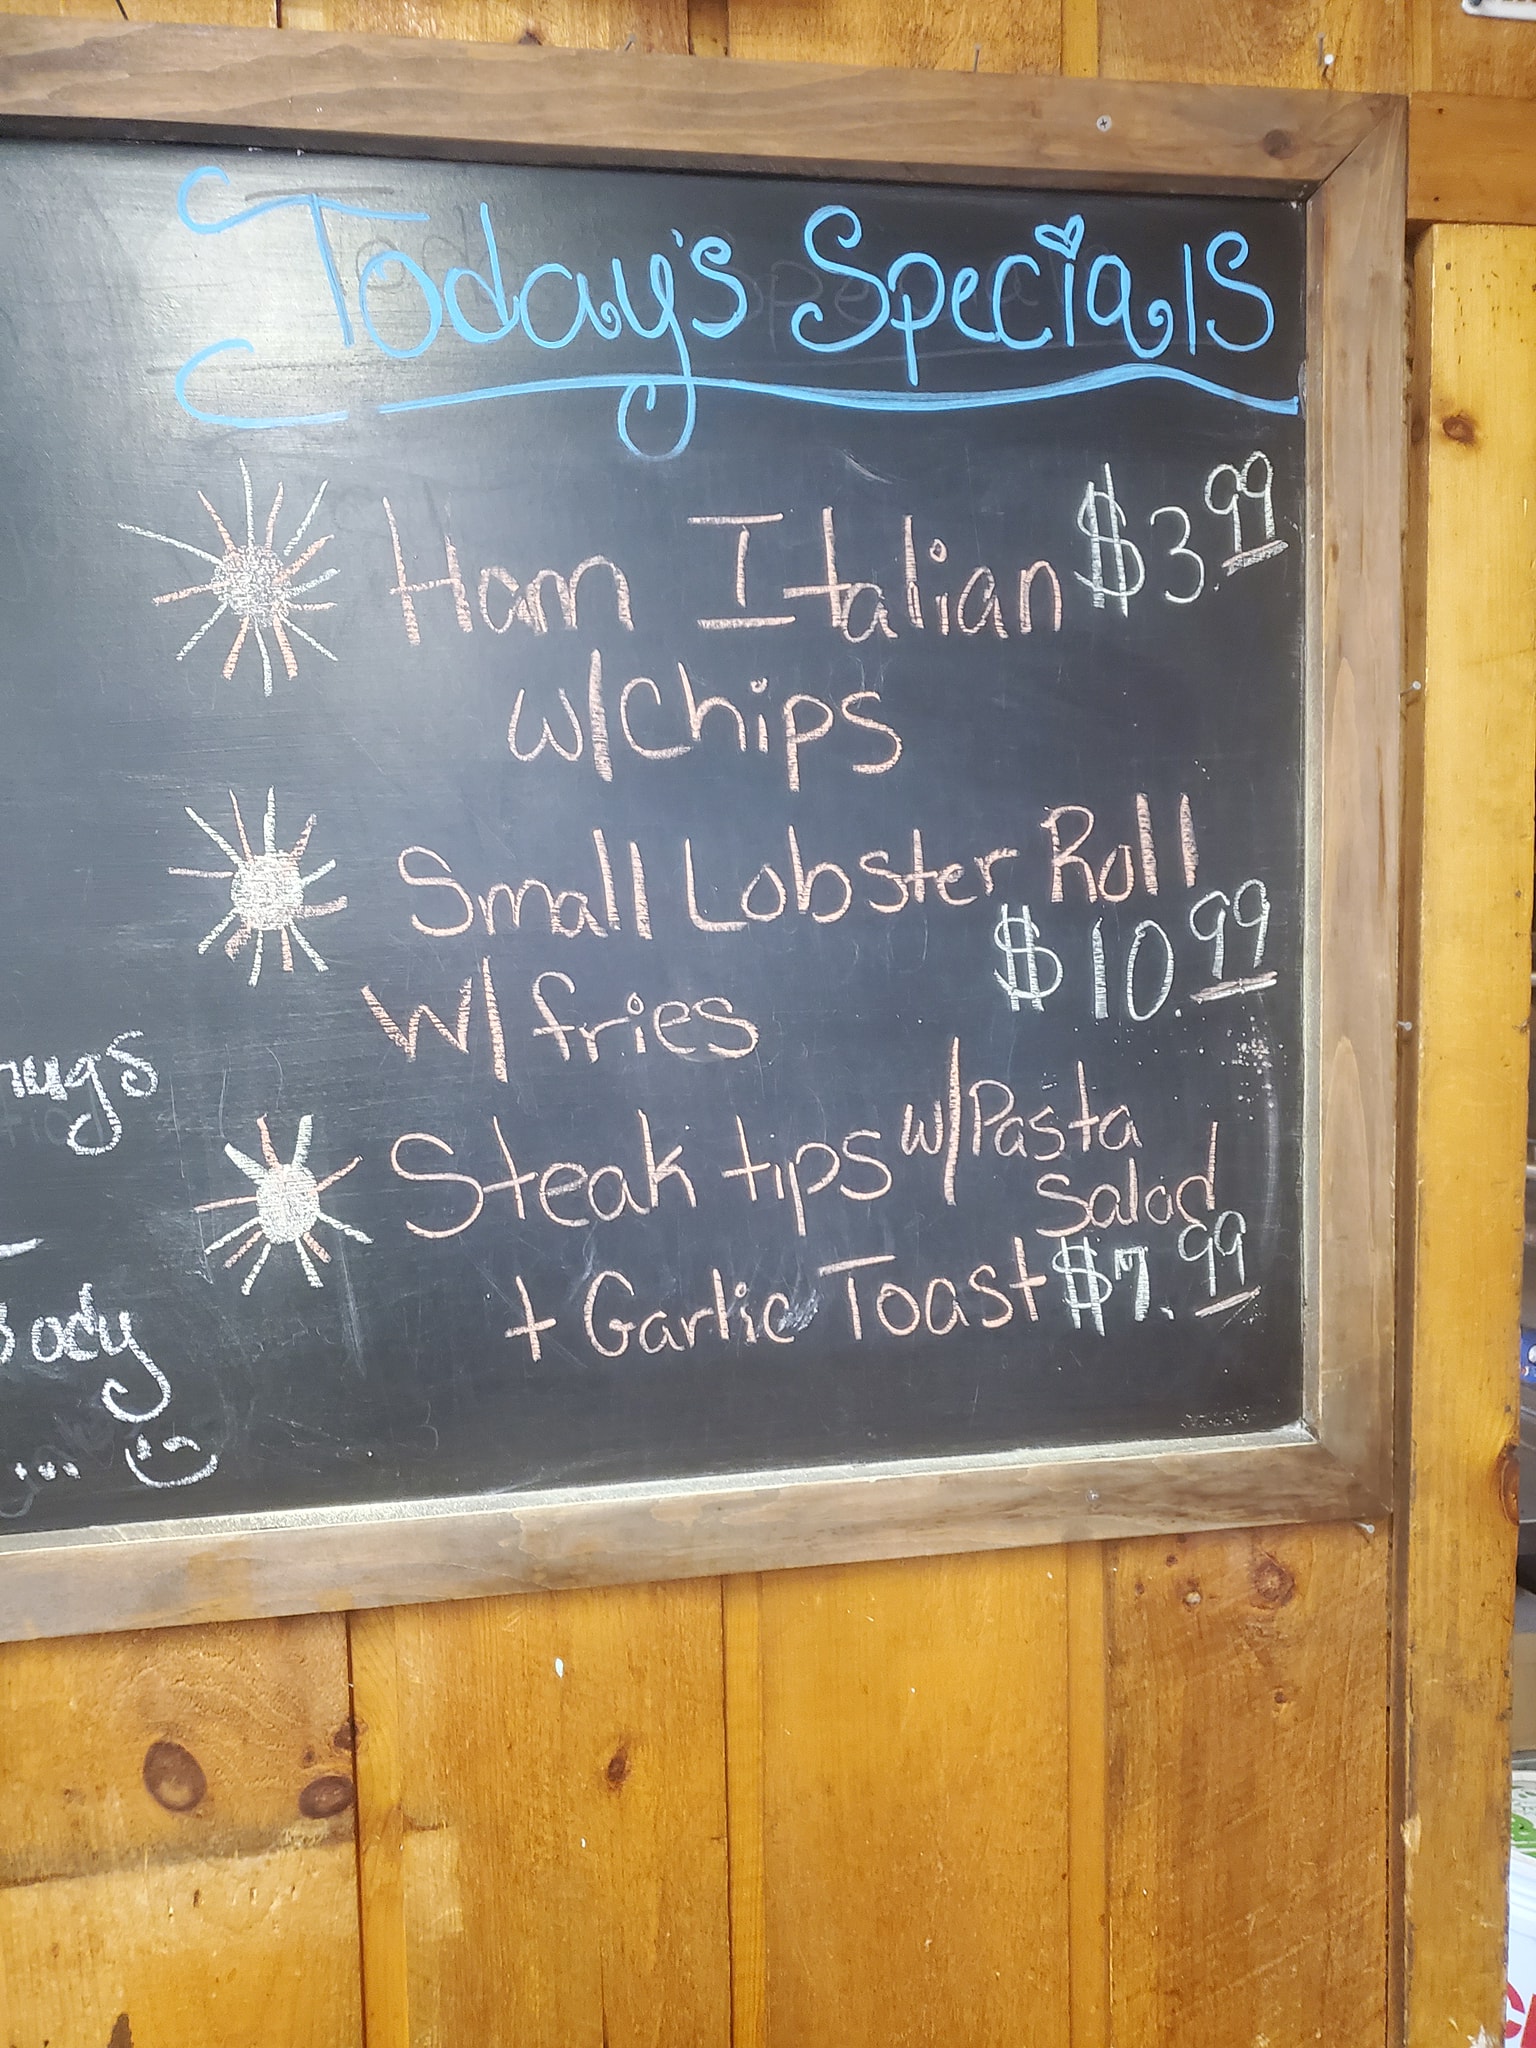 Today's Specials
Ham Italian $3.99
w/Chips
Small Lobster Roll
$10.99
w/fries
Steak tips w/Pasta
Salad
+ Garlic Toast $7.99
ugs
ody
...